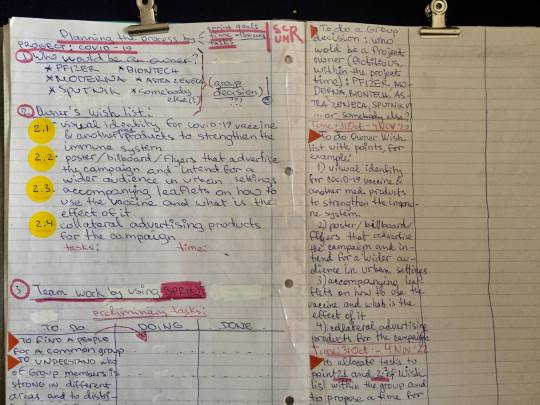 Planning the process by
sprint goals
time-library
tasks
SCRUM
PROJECT: COVID-19
1. Who would be an owner?
* PFIZER * BIONTECH
* MODERNA * ASTRA ZENECA
* SPUTNIK * somebody else(?)
(group decision ??)
2. Owner's wish list:
2.1 - visual identity for covid-19 vaccine
& another products to strengthen the
immune system
2.2 - poster/billboard/flyers that advertise
thy campaign and intend for a
wider audience in urban settings
2.3. accompanying leaflets on how to
use the vaccine and what is the
effect of it.
2.4 collateral advertising products
for the campaign
tasks: time:
3. Team work by using SPRINT
preliminary tasks:
TO DO DOING DONE
TO FIND A PEOPLE
FOR A COMMON GROUP
TO UNDERSTAND who
of Group members is
STRONG IN different
areas and to disti-
To do a Group
decision: who
wold be a Project
owner (fictitious,
within the project
time): PFIZER, MO-
DERNA, BIONTECH, AS-
TRA ZENECA, SPUTNIK
... or somebody else?
time: 31 Oct - 4 Nov '22
To do Owner Wish
list with points, for
example:
1) visual identity
for COVID-19 vaccine &
another med products
to strengthen the immu-
ne system.
2) poster/billboard/
flyers that advertise
the campaign and in-
tend for a wider au-
dience in urban settings
3) accompanying leaf-
lets on how to use the
vaccine and what is the
effect of it
4) collateral advertising
products for the campaign
time: 31 Oct - 4 Nov '22
To allocate tasks to
point 2.1 and 2.2 of Wish
list within the group and
to propose a time for